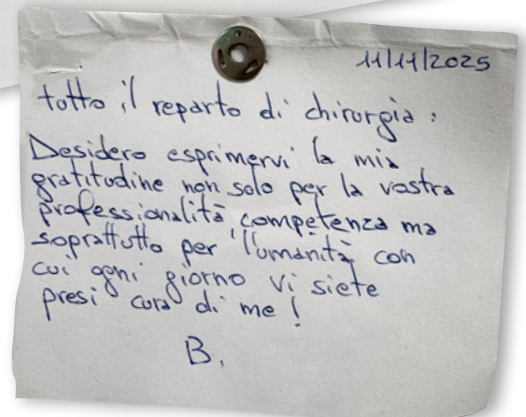 11/11/2025
tutto il reparto di chirurgia:
Desidero esprimervi la mia
gratitudine non solo per la vostra
professionalità, competenza ma
soprattutto per l'umanità con
cui ogni giorno vi siete
presi cura di me!
B.